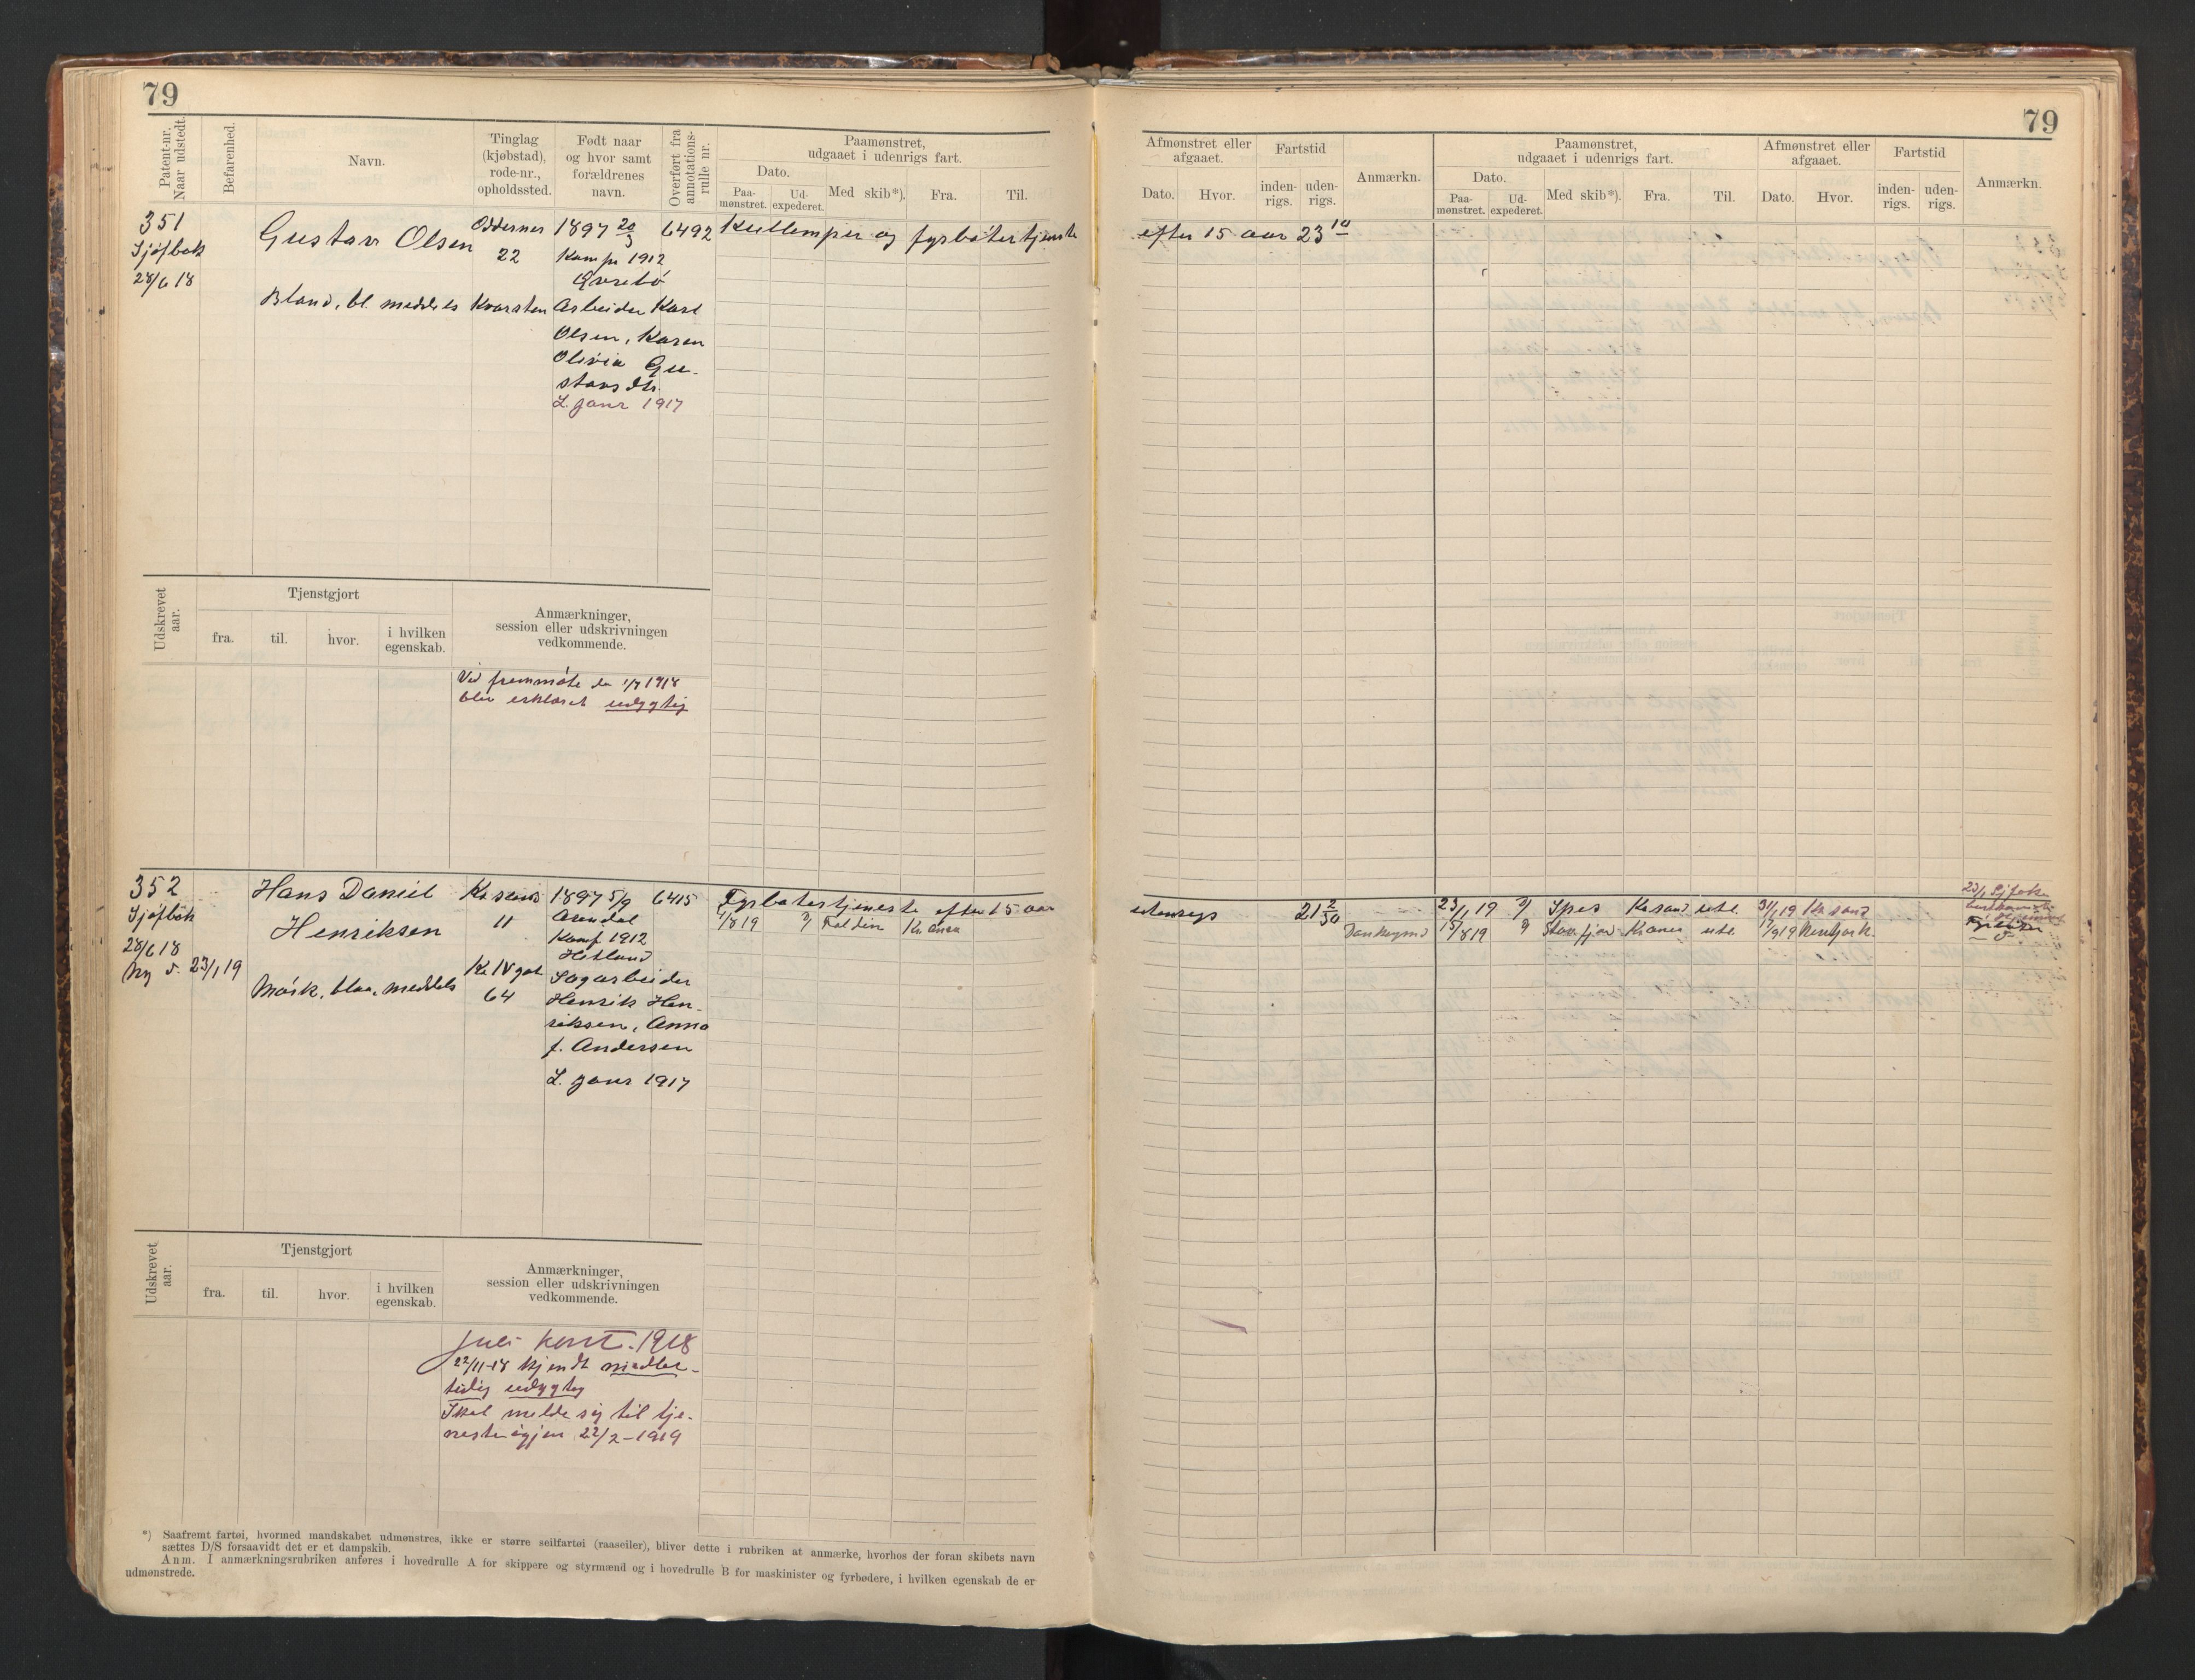 79
Patent-nr.
Naar udstedt.
Befarenhed.
Navn.
Tinglag
(kjøbstad),
rode-nr.,
opholdssted.
Født naar
og hvor samt
forældrenes
navn.
Overført fra
annotations-
rulle nr.
Paamønstret,
udgaaet i udenrigs fart.
Dato.
Paa-
mønstret.
Ud-
expederet.
Med skib*).
Fra.
Til.
351
Sjøfbok
28/6 18
Gustav Olsen
Bland. bl. meddeles
Oddernes
22
Kvarsten
1897 20/3
Komf. 1912
Øvrebø
Arbeider Karl
Olsen, Karen
Olivia Gu-
stavsdtr.
L. janr 1917
6492
Kullemper og fyrbøtertjeneste
Udskrevet
aar.
Tjenstgjort
fra.
til.
hvor.
i hvilken
egenskab.
Anmærkninger,
session eller udskrivningen
vedkommende.
Ved fremmøte den 1/7 1918
blev erklæret udygtig
352
Sjøfbok
28/6 18
Ny d. 23/1 19
Hans Daniel
Henriksen
Mørk. blaa. meddels
Kr.sand
11
64
1897 5/9
Arendal
Komf. 1912
Sagarbeider
Henrik Hen-
riksen, Anna
f. Andersen
L. janr 1917
6415
Fyrbøtertjeneste efter 15 aar
4/8 19
Kr.ania
Udskrevet
aar.
Tjenstgjort
fra.
til.
hvor.
i hvilken
egenskab.
Anmærkninger,
session eller udskrivningen
vedkommende.
Juli kont. 1918
22/11-18 kjendt midler-
tidig udygtig
Skal melde sig til tje-
neste igjen 22/2-1919
*) Saafremt fartøi, hvormed mandskabet udmønstres, ikke er større seilfartøi (raaseiler), bliver dette i rubriken at anmærke, hvorhos der foran skibets navn
sættes D/S forsaavidt det er et dampskib.
Anm. I anmærkningsrubriken anføres i hovedrulle A for skippere og styrmænd og i hovedrulle B for maskinister og fyrbødere, i hvilken egenskab de er
udmønstrede.
79
Afmønstret eller
afgaaet.
Dato.
Hvor.
Fartstid
inden-
rigs.
uden-
rigs.
Anmærkn.
Paamønstret,
udgaaet i udenrigs fart.
Dato.
Paa-
mønstret.
Ud-
expederet.
Med skib*).
Fra.
Til.
Afmønstret eller
afgaaet.
Dato.
Hvor.
Fartstid
inden-
rigs.
uden-
rigs.
Anmærkn.
efter 15 aar 23 10
utenrigs
21 2/30
23/1 19
Spes
Kr.sand
utl.
31/1 19
Kr.sand
15/8 19
Kr.ania
utl.
17/9 19